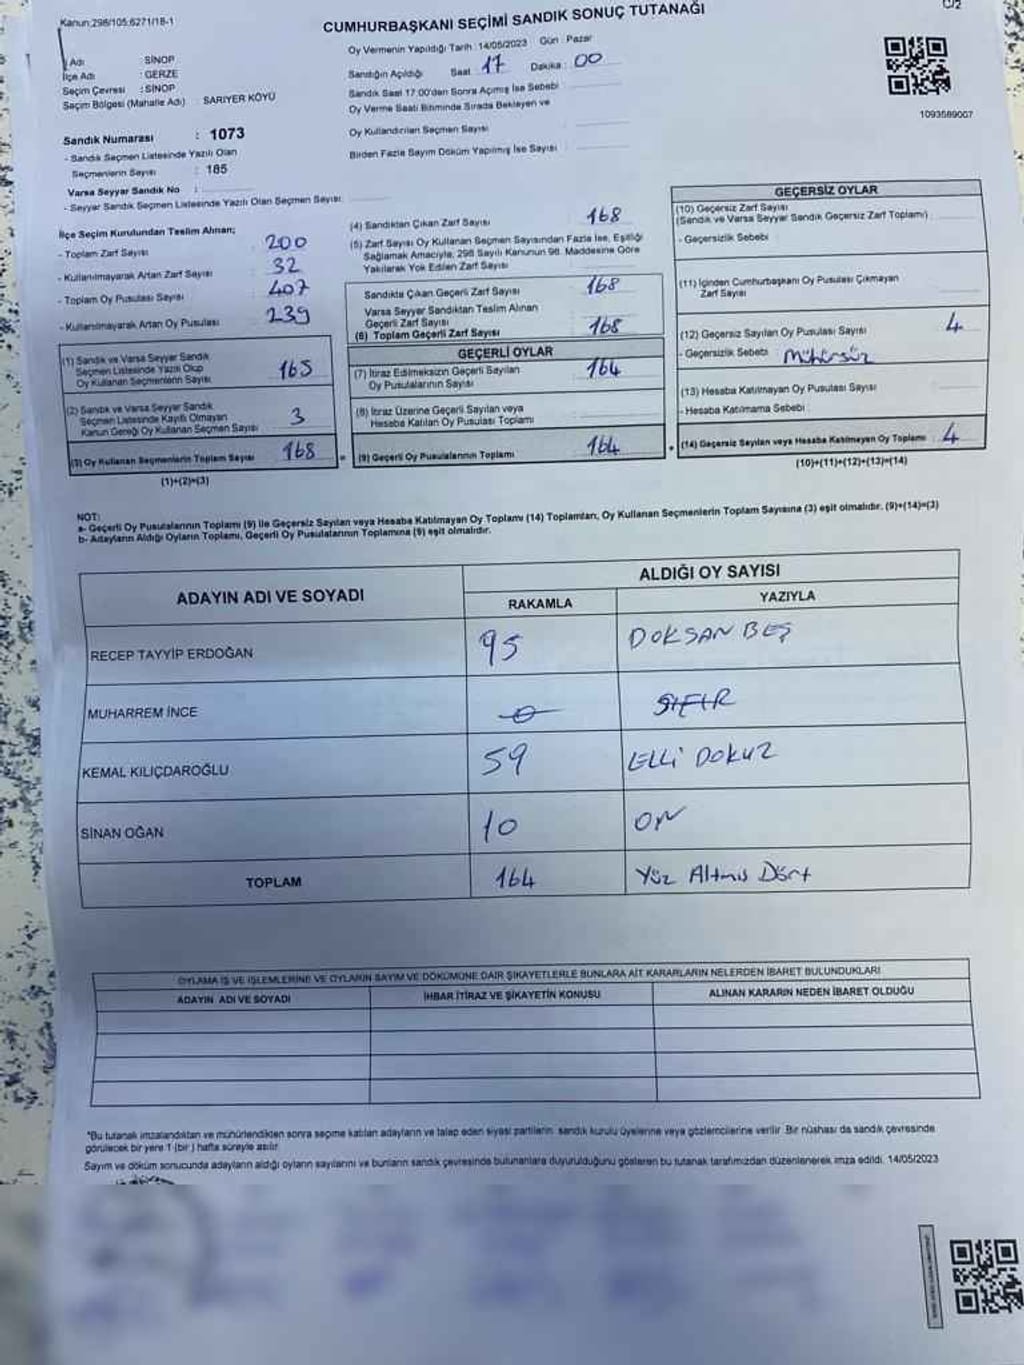 Kanun:298/105;6271/18-1
C/2
CUMHURBAŞKANI SEÇİMİ SANDIK SONUÇ TUTANAĞI
İl Adı : SİNOP
İlçe Adı : GERZE
Seçim Çevresi : SİNOP
Seçim Bölgesi (Mahalle Adı) : SARIYER KÖYÜ
Oy Vermenin Yapıldığı Tarih : 14/05/2023 Gün : Pazar
Sandığın Açıldığı Saat : 17 Dakika : 00
Sandık Saat 17:00'den Sonra Açılmış İse Sebebi :
Oy Verme Saati Bitiminde Sırada Bekleyen ve
Oy Kullandırılan Seçmen Sayısı :
Birden Fazla Sayım Döküm Yapılmış İse Sayısı :
1093589007
Sandık Numarası : 1073
- Sandık Seçmen Listesinde Yazılı Olan
Seçmenlerin Sayısı : 185
Varsa Seyyar Sandık No :
- Seyyar Sandık Seçmen Listesinde Yazılı Olan Seçmen Sayısı:
İlçe Seçim Kurulundan Teslim Alınan;
- Toplam Zarf Sayısı : 200
- Kullanılmayarak Artan Zarf Sayısı : 32
- Toplam Oy Pusulası Sayısı : 407
- Kullanılmayarak Artan Oy Pusulası : 239
(1) Sandık ve Varsa Seyyar Sandık
Seçmen Listesinde Yazılı Olup
Oy Kullanan Seçmenlerin Sayısı : 165
(2) Sandık ve Varsa Seyyar Sandık
Seçmen Listesinde Kayıtlı Olmayan
Kanun Gereği Oy Kullanan Seçmen Sayısı : 3
(3) Oy Kullanan Seçmenlerin Toplam Sayısı : 168
(1)+(2)=(3)
(4) Sandıktan Çıkan Zarf Sayısı : 168
(5) Zarf Sayısı Oy Kullanan Seçmen Sayısından Fazla İse, Eşitliği
Sağlamak Amacıyla, 298 Sayılı Kanunun 98. Maddesine Göre
Yakılarak Yok Edilen Zarf Sayısı :
Sandıkta Çıkan Geçerli Zarf Sayısı : 168
Varsa Seyyar Sandıktan Teslim Alınan
Geçerli Zarf Sayısı :
(6) Toplam Geçerli Zarf Sayısı : 168
GEÇERLİ OYLAR
(7) İtiraz Edilmeksizin Geçerli Sayılan
Oy Pusulalarının Sayısı : 164
(8) İtiraz Üzerine Geçerli Sayılan veya
Hesaba Katılan Oy Pusulası Toplamı :
(9) Geçerli Oy Pusulalarının Toplamı : 164
GEÇERSİZ OYLAR
(10) Geçersiz Zarf Sayısı
(Sandık ve Varsa Seyyar Sandık Geçersiz Zarf Toplamı) :
- Geçersizlik Sebebi :
(11) İçinden Cumhurbaşkanı Oy Pusulası Çıkmayan
Zarf Sayısı :
(12) Geçersiz Sayılan Oy Pusulası Sayısı : 4
- Geçersizlik Sebebi : Mühürsüz
(13) Hesaba Katılmayan Oy Pusulası Sayısı :
- Hesaba Katılmama Sebebi :
(14) Geçersiz Sayılan veya Hesaba Katılmayan Oy Toplamı : 4
(10)+(11)+(12)+(13)=(14)
NOT:
a- Geçerli Oy Pusulalarının Toplamı (9) ile Geçersiz Sayılan veya Hesaba Katılmayan Oy Toplamı (14) Toplamları, Oy Kullanan Seçmenlerin Toplam Sayısına (3) eşit olmalıdır. (9)+(14)=(3)
b- Adayların Aldığı Oyların Toplamı, Geçerli Oy Pusulalarının Toplamına (9) eşit olmalıdır.
ADAYIN ADI VE SOYADI ALDIĞI OY SAYISI
RAKAMLA YAZIYLA
RECEP TAYYİP ERDOĞAN 95 DOKSAN BEŞ
MUHARREM İNCE 0 SIFIR
KEMAL KILIÇDAROĞLU 59 ELLİ DOKUZ
SİNAN OĞAN 10 ON
TOPLAM 164 Yüz Altmış Dört
OYLAMA İŞ VE İŞLEMLERİNE VE OYLARIN SAYIM VE DÖKÜMÜNE DAİR ŞİKAYETLERLE BUNLARA AİT KARARLARIN NELERDEN İBARET BULUNDUKLARI
ADAYIN ADI VE SOYADI İHBAR İTİRAZ VE ŞİKAYETİN KONUSU ALINAN KARARIN NEDEN İBARET OLDUĞU
*Bu tutanak imzalandıktan ve mühürlendikten sonra seçime katılan adayların ve talep eden siyasi partilerin sandık kurulu üyelerine veya gözlemcilerine verilir. Bir nüshası da sandık çevresinde
görülecek bir yere 1 (bir) hafta süreyle asılır.
Sayım ve döküm sonucunda adayların aldığı oyların sayılarını ve bunların sandık çevresinde bulunanlara duyurulduğunu gösteren bu tutanak tarafımızdan düzenlenerek imza edildi. 14/05/2023